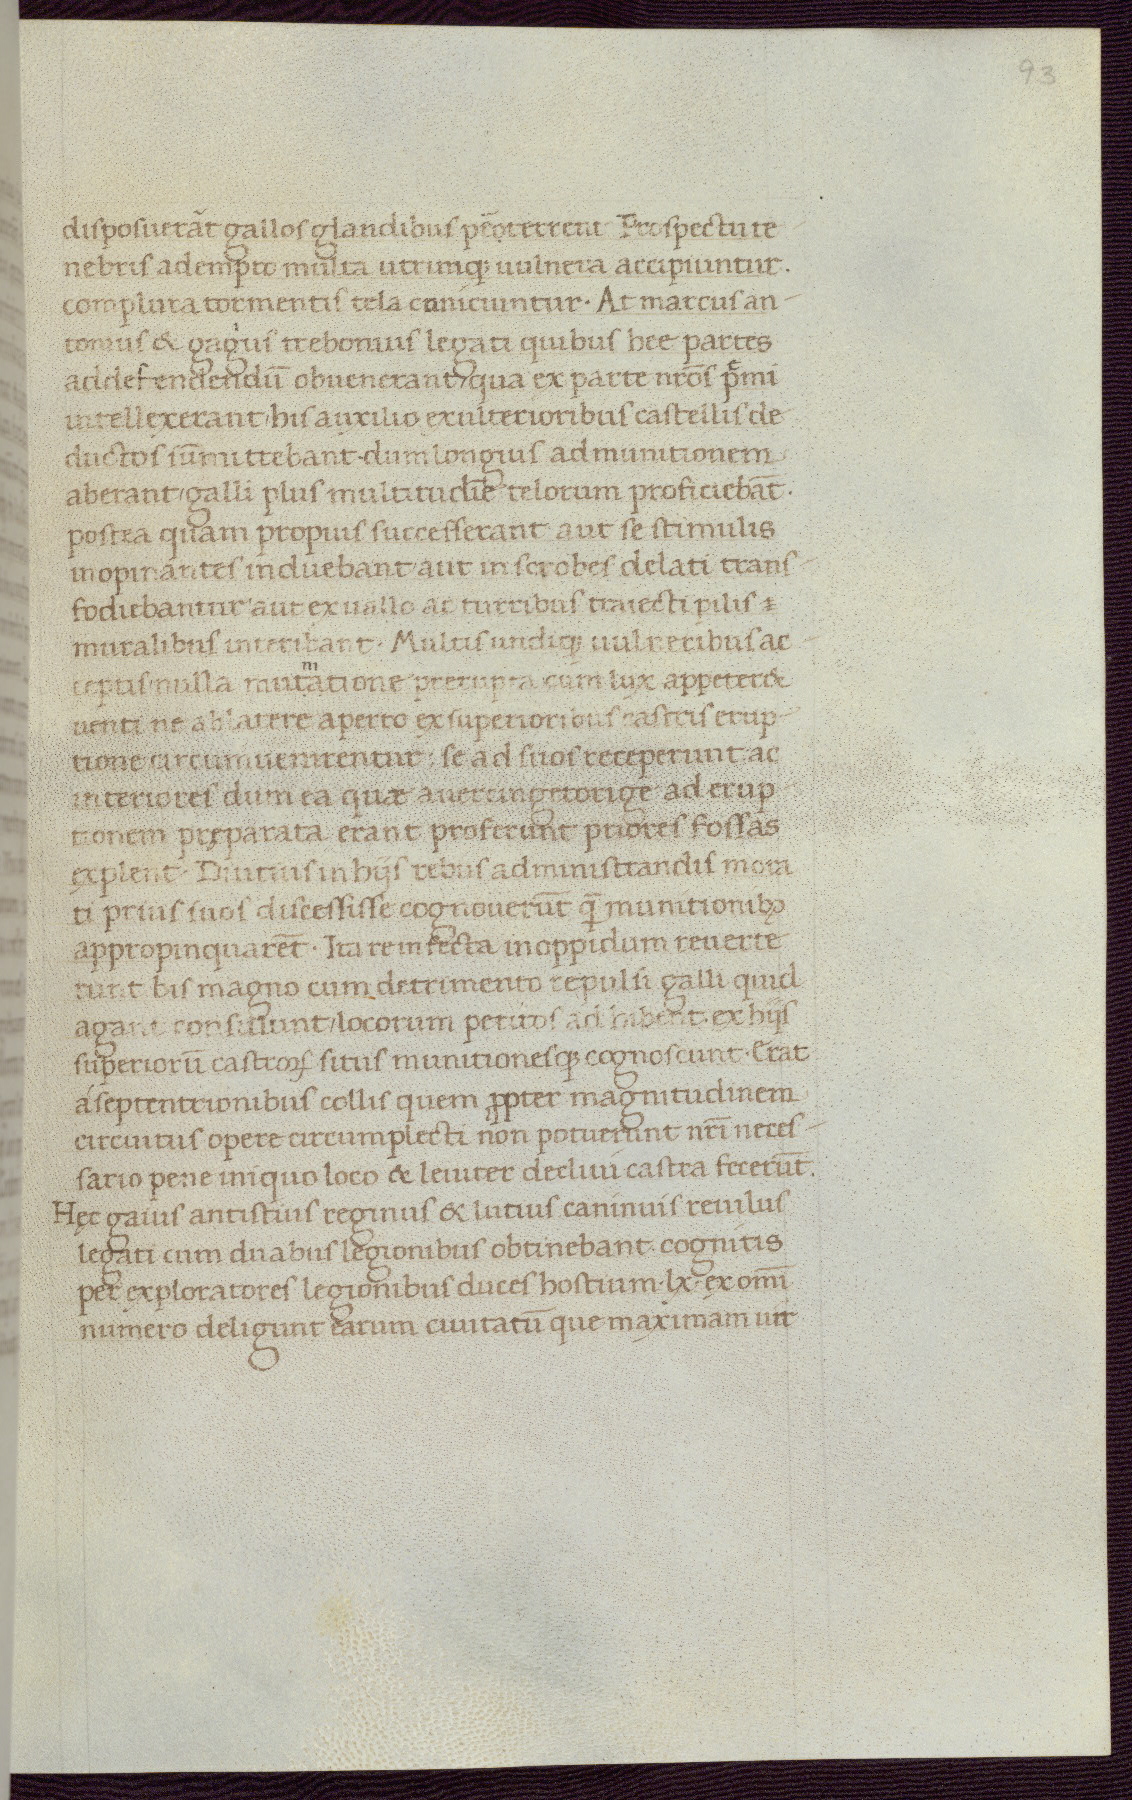 93
disposuerāt gallos glandibus pēoterrent Prospectu te
nebris adempto multa utrinq; uulnera accipiuntur.
complura tormentis tela conïciuntur· At marcus an-
tonius & gagius trebonius legati quibus hee partes
ad defendendū obuenerant/qua ex parte nr̄os p̄mi
intellexerant/his auxilio exulterioribus castellis de
ductos sūmittebant·dum longius ad munitionem
aberant/galli plus multitudīe telorum proficiebāt·
postea quam propius successerant aut se stimulis
inopinantes induebant/aut in scrobes delati trans-
fodiebantur/aut ex uallo ac turribus traiecti pilis
muralibus interibant· Multis undiq; uulneribus ac
ceptis/nulla munitatione prerupta cum lux appeter&
uenti ne ab latere aperto ex superioribus castris erup-
tione circumuenirentur: se ad suos receperunt ac
interiores dum ea quæ auercingetorige ad erup-
tionem pręparata erant proferunt priores fossas
explent· Diutius in hijs rebus administrandis mora
ti prius suos discessisse cognouerūt q̄ munitionibȝ
appropinquarēt· Ita re infecta in oppidum reuerte
runt bis magno cum detrimento repulsi galli quid
agant consulunt/locorum peritos adhibent·ex hijs
superiorū castroꝝ situs munitionesq; cognoscunt·Erat
á septentrionibus collis quem ꝓpter magnitudinem
circuitus opere circumplecti non potuerunt nrī neces-
sario pene iniquo loco & leniter decliui castra fecerūt.
Hęc gaius antistius reginus & lutius caninuis reuilus
legati cum duabus legionibus obtinebant·cognitis
per exploratores legionibus duces hostium·lx·ex omī
numero deligunt earum ciuitatū que maximam uir